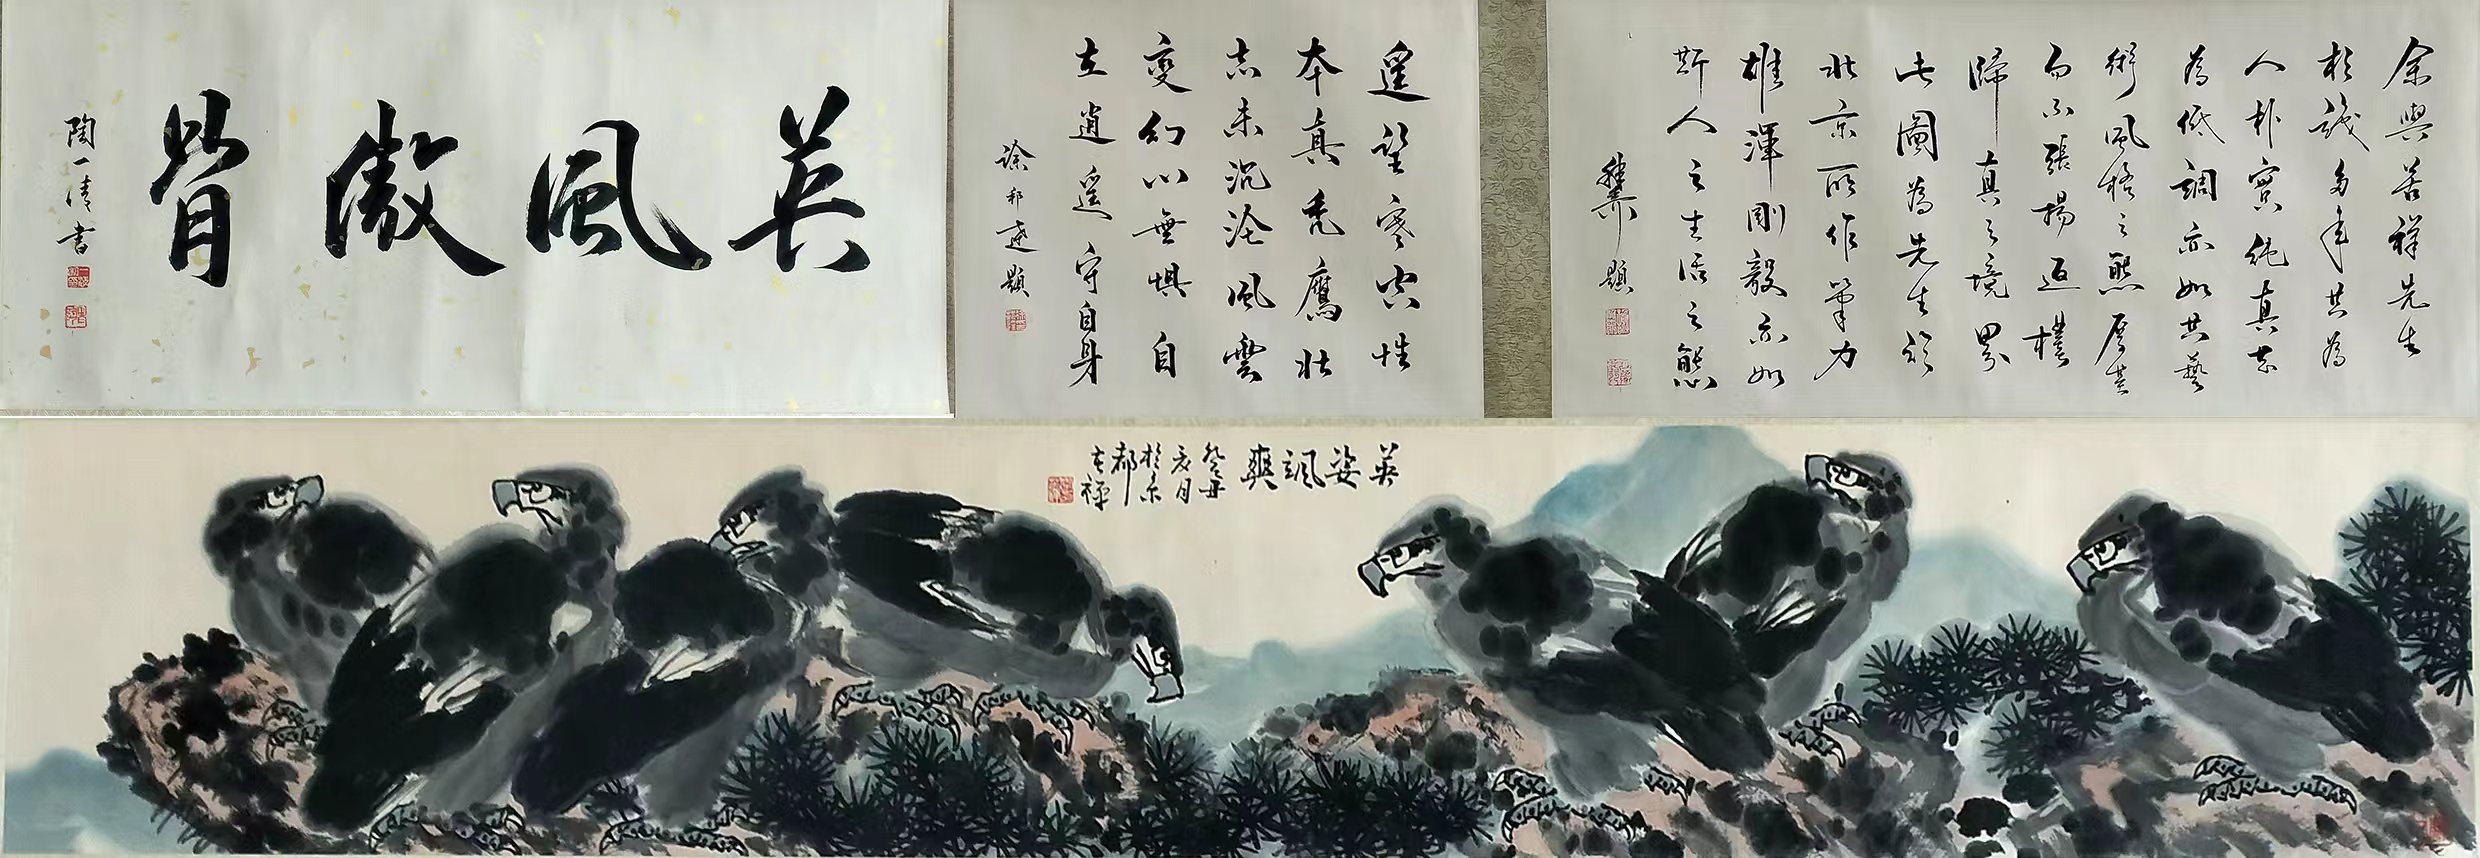 余與苦禪先生
相識多年其為
人朴實純真甘
為低調亦如其藝
術風格之厚其
而不張揚返樸
歸真之境界
此圖為先生於
北京所作筆力
雄渾剛毅亦如
斯人之生活之態
稚柳題
遥望寒空性
本真禿鷹壯
志未沉淪風雲
變幻心無懼自
在逍遥守自身
徐邦達題
英風傲骨
陶一清書
英姿颯爽
癸丑
亥月
於京
都
苦禪